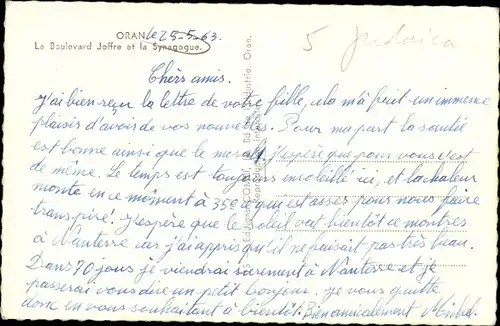 ORAN le 25-5-63
5 Judaica
Le Boulevard Joffre et la Synagogue.
Chers amis.
J'ai bien reçu la lettre de votre fille, cela m'a fait un immense
plaisir d'avoir de vos nouvelles. Pour ma part la santé
est bonne ainsi que le moral, j'espère que pour vous c'est
de même. Le temps est toujours ensoleillé ici, et la chaleur
monte en ce moment à 35° ce qui est assez pour nous faire
transpiré. J'espère que le soleil vat bientôt ce montrer
à Nanterre car j'ai appris qu'il ne faisait pas très beau.
Dans 70 jours je viendrai sûrement à Nanterre et je
passerai vous dire un petit bonjour. Je vous quitte
donc en vous souhaitant à bientôt. Bien amicalement Michel.